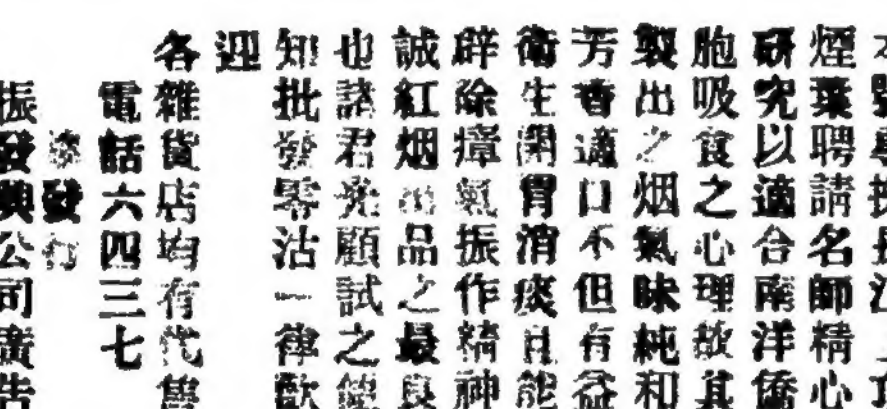 煙葉聘請名師精心
研究以適合南洋僑
胞吸食之心理故其
製出之烟氣味純和
芳香適口不但有益
衛生開胃消痰且能
辟除瘴氣振作精神
誠紅烟出品之最良
也諸君光顧試之便
知批發零沽一律歡
迎
各雜貨店均有代售
電話六四三七
發行
振發興公司廣告